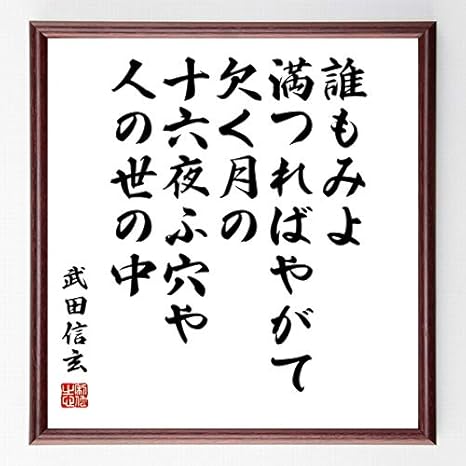 誰もみよ
満つればやがて
欠く月の
十六夜ふ穴や
人の世の中
武田信玄